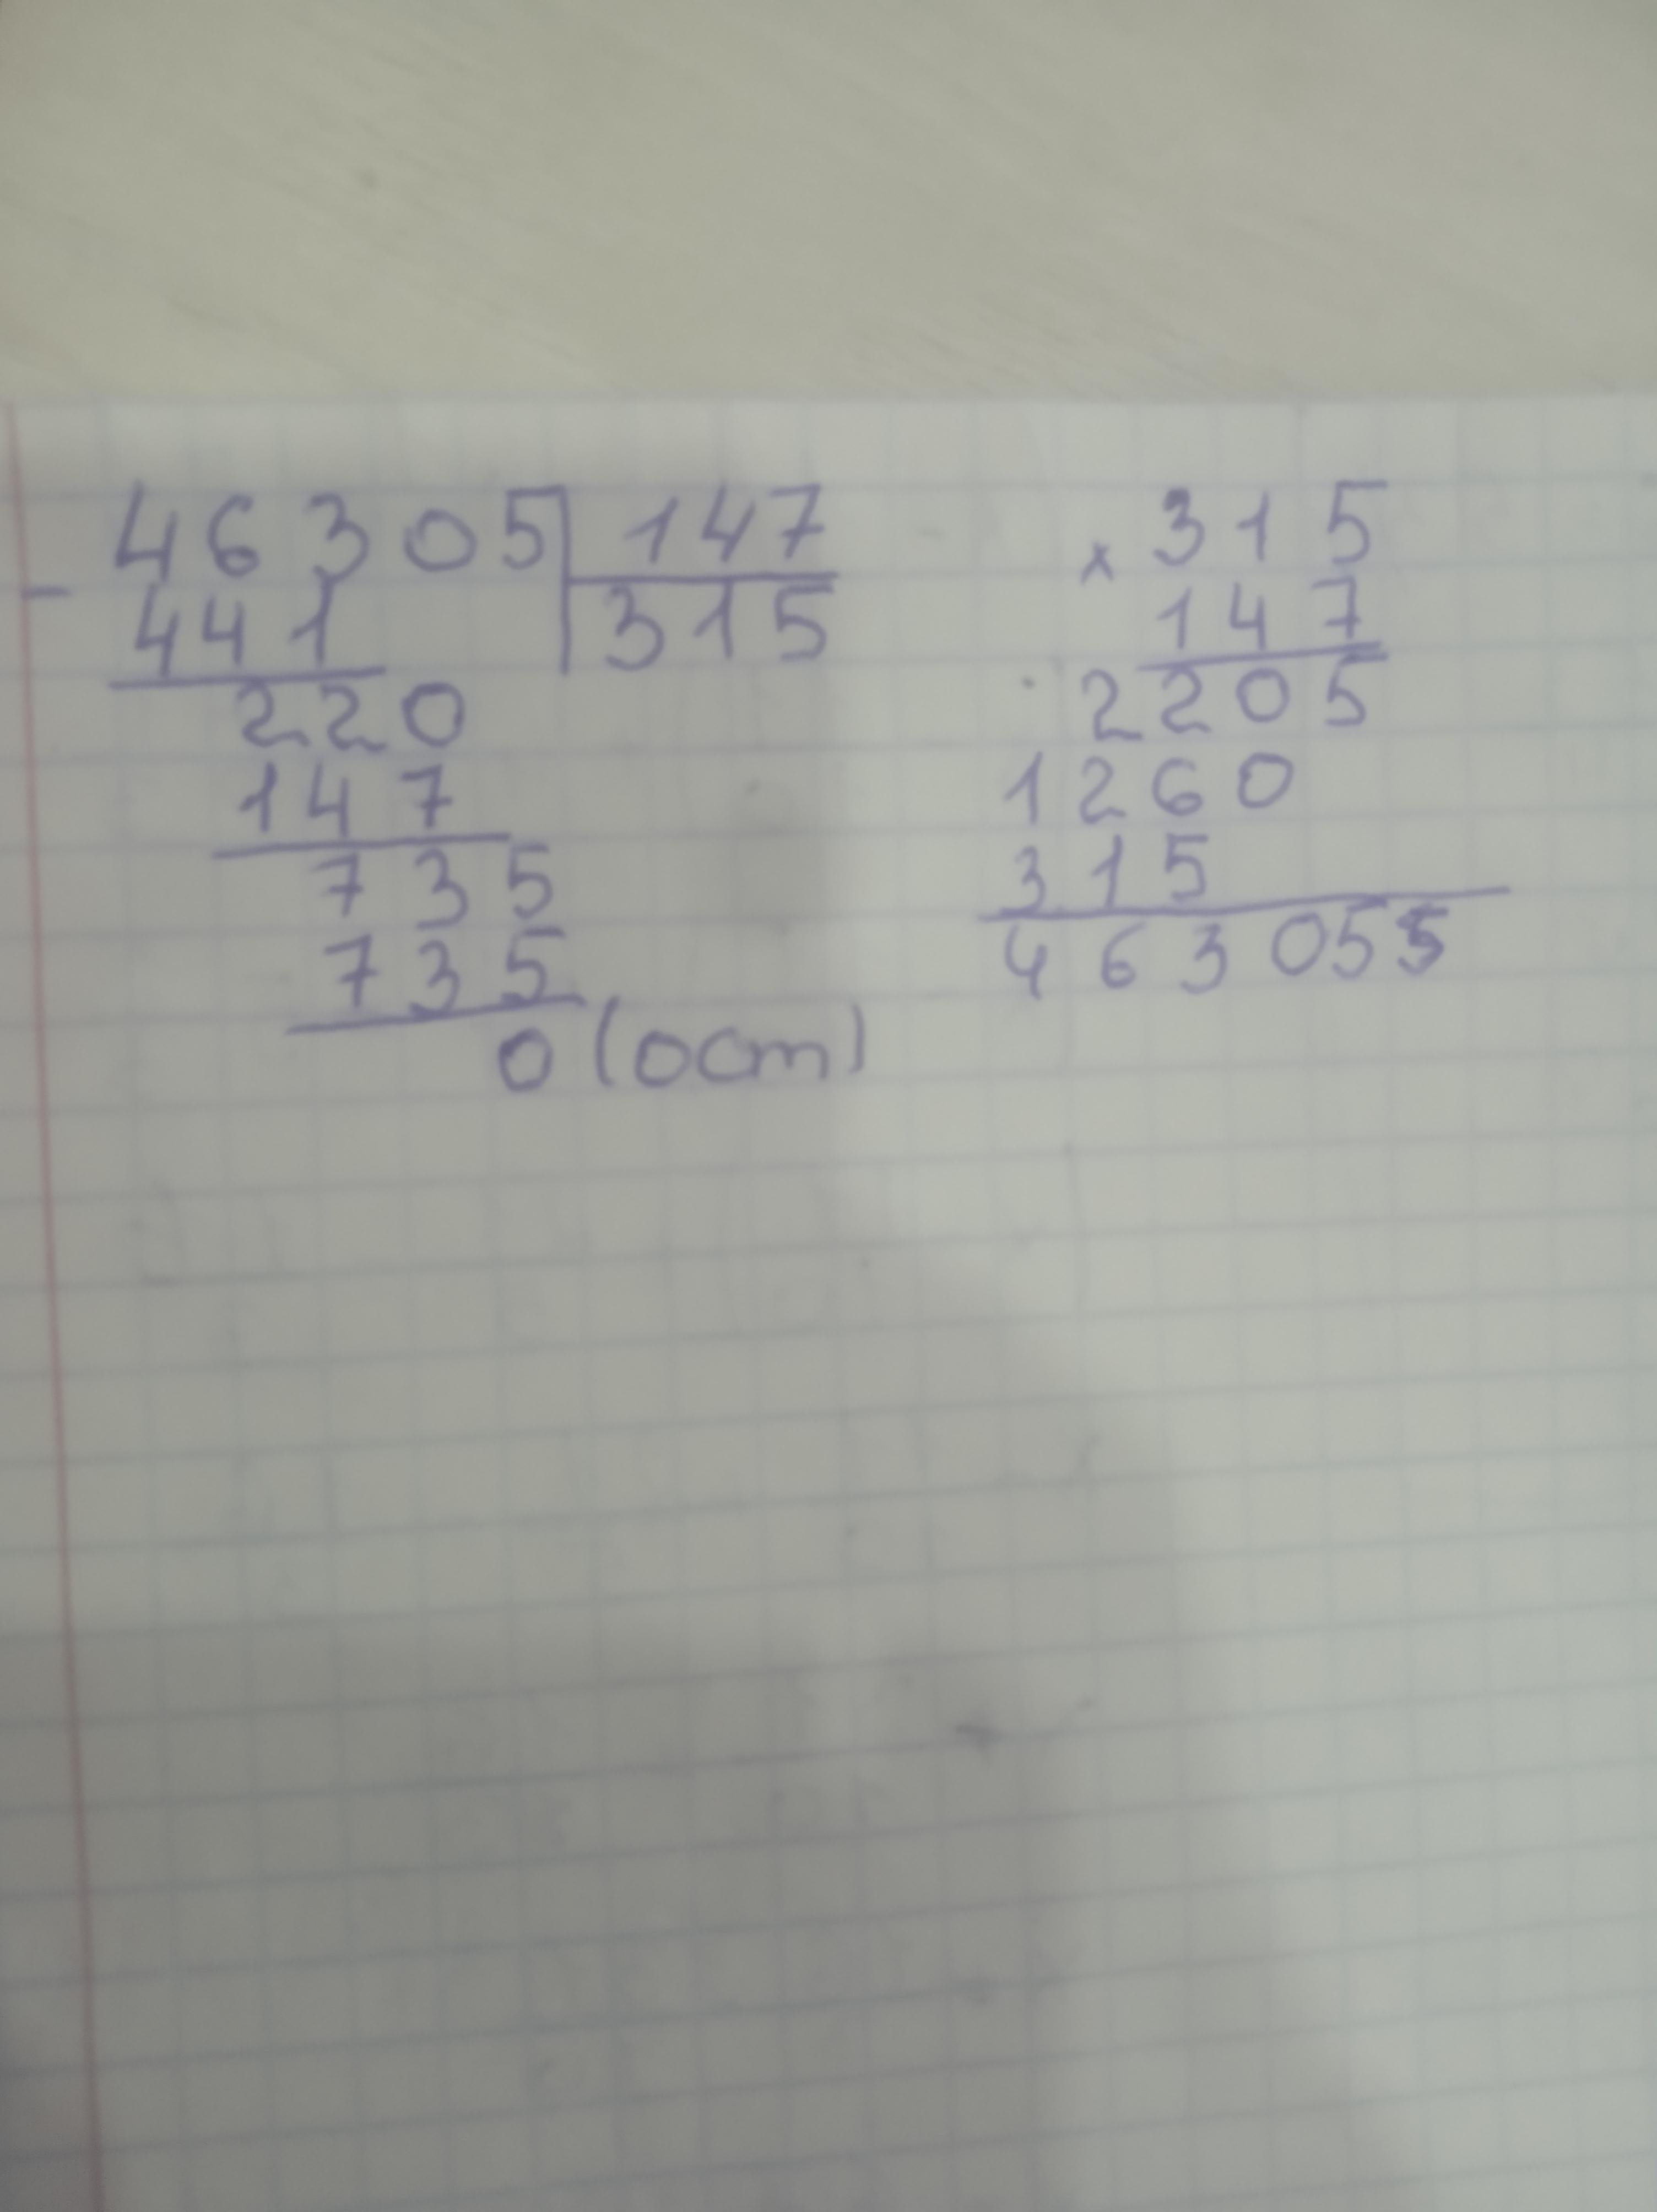 46305 147
- 441 315
220
147
735
735
0 (ост)
× 315
147
2205
1260
315
463055